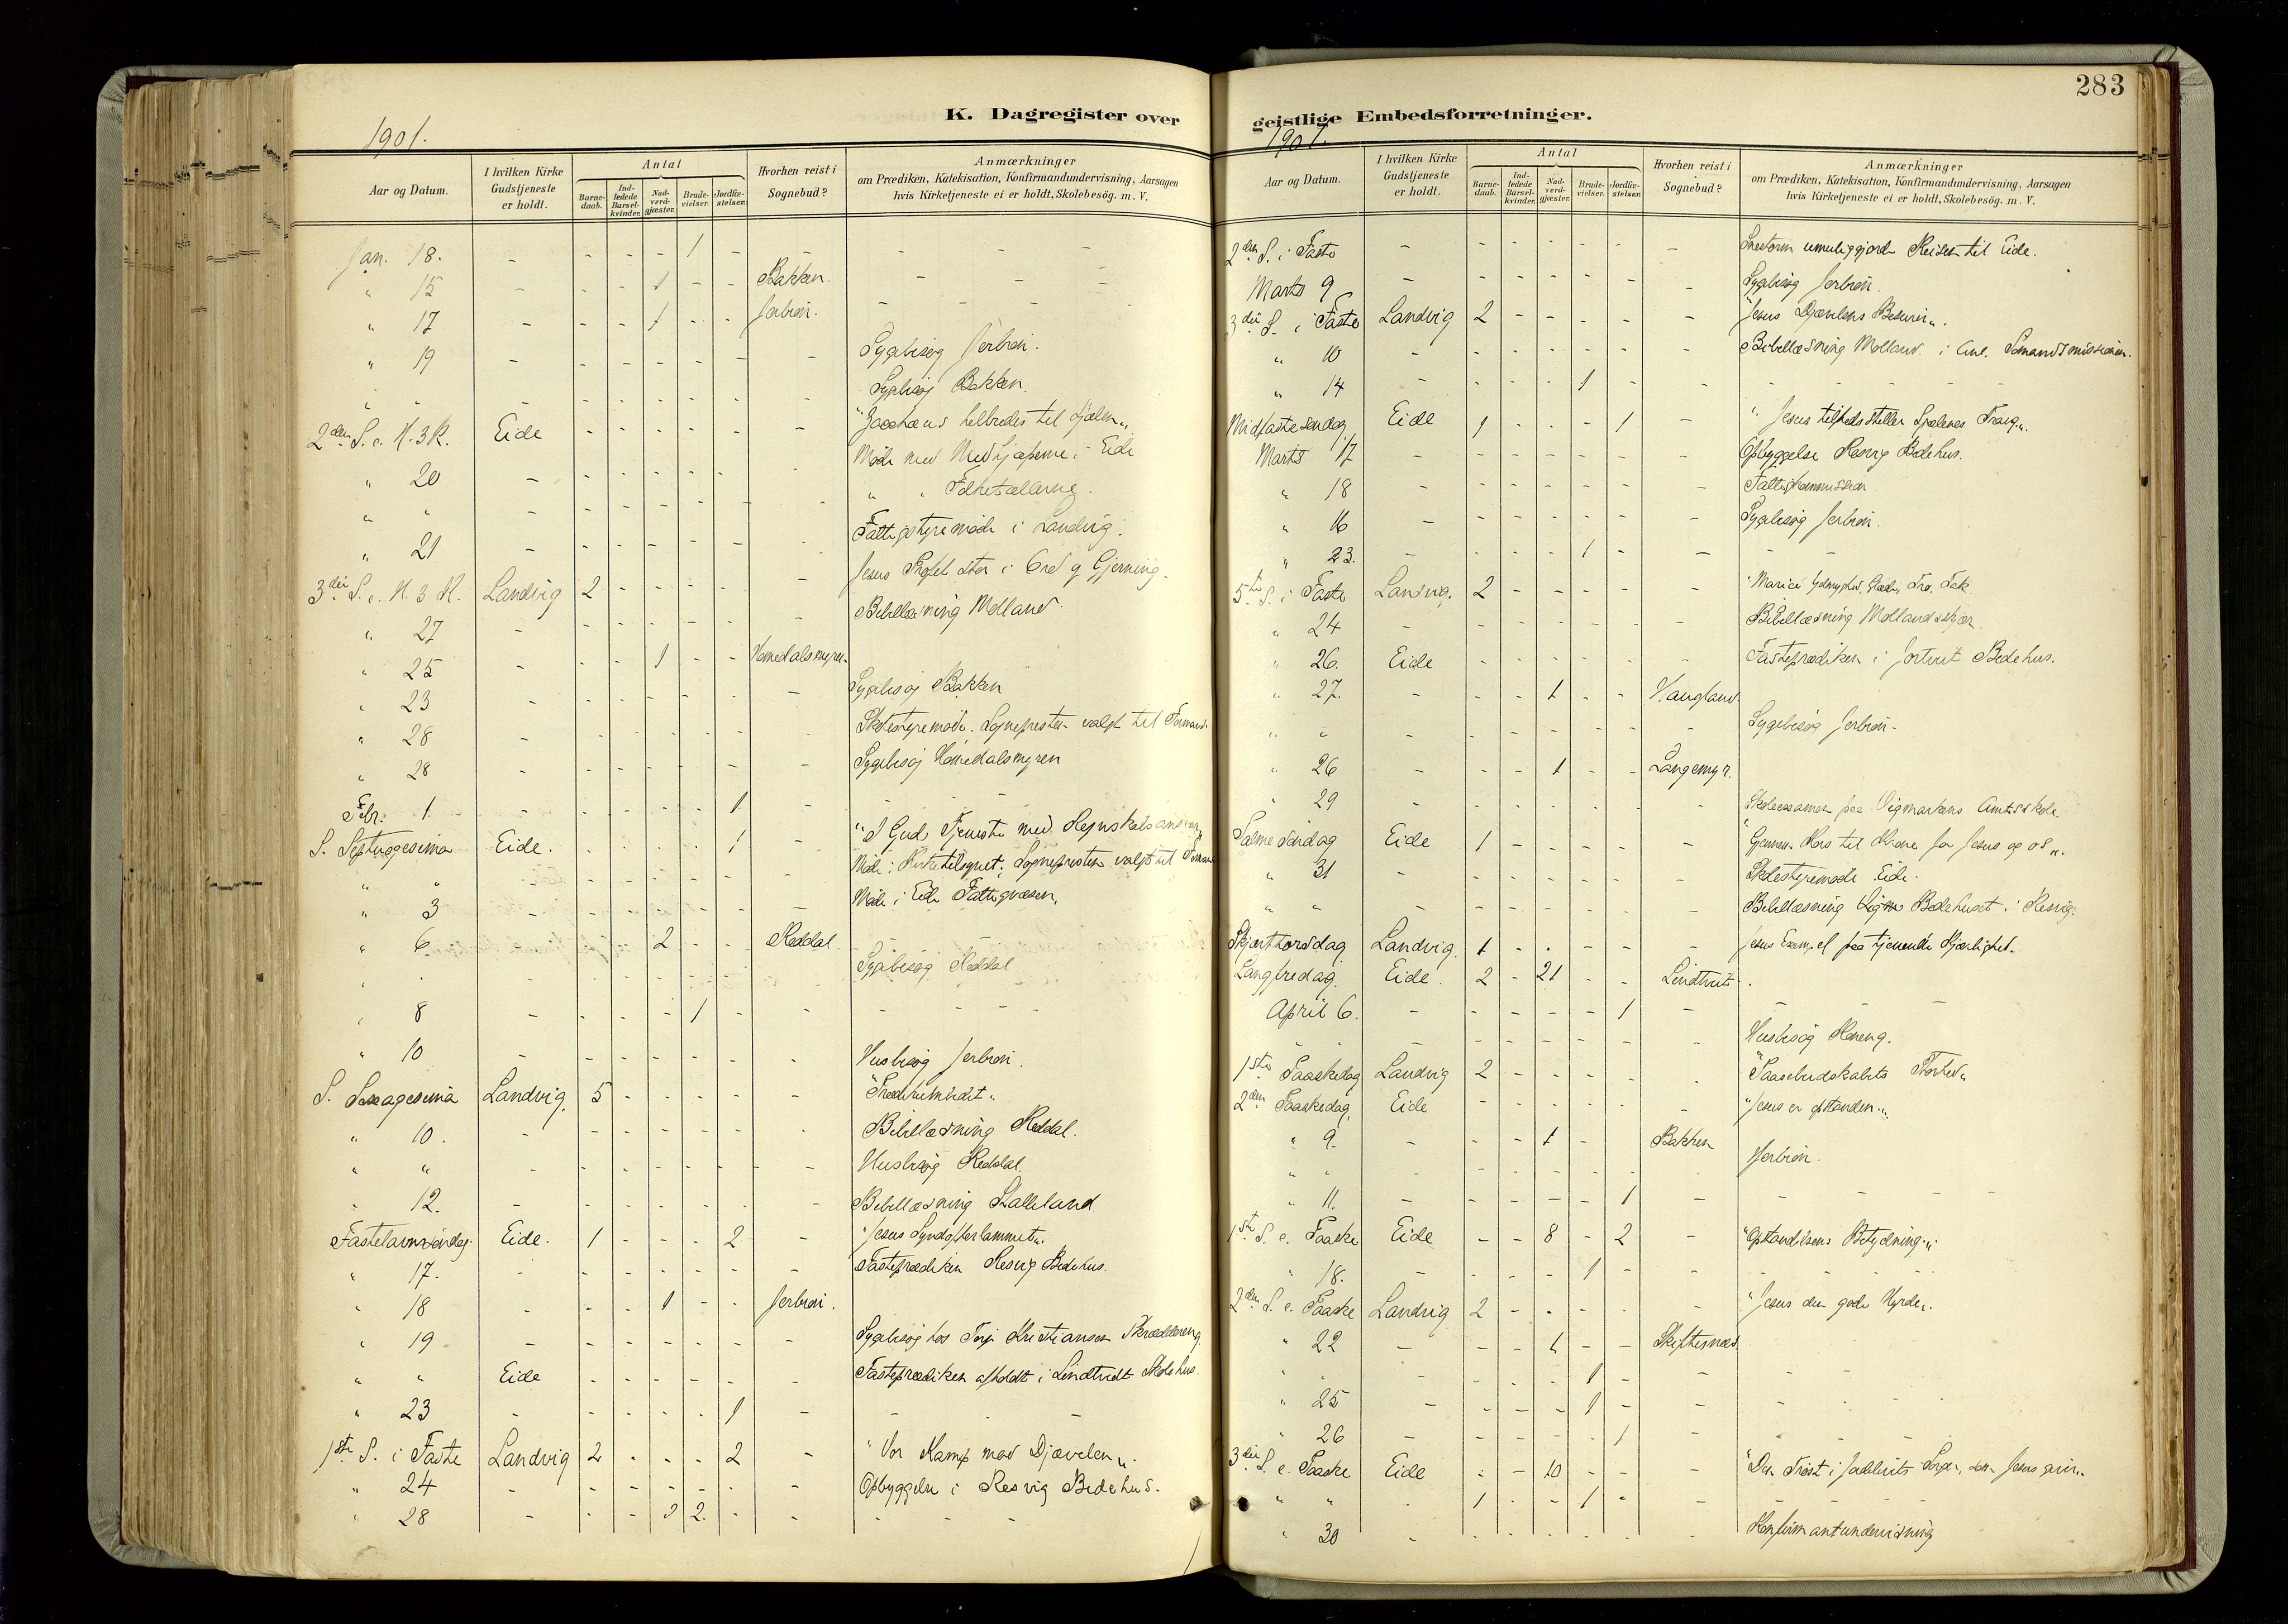 283
K. Dagregister over
geistlige Embedsforretninger.
1901.
Aar og Datum.
I hvilken Kirke Gudstjeneste er holdt.
Antal
Barne-daab.
Ind-ledede Barsel-kvinder.
Nad-verd-gjæster.
Brude-vielser.
Jordfæ-stelser.
Hvorhen reist i Sognebud?
Anmærkninger
om Prædiken, Katekisation, Konfirmandundervisning, Aarsagen
hvis Kirketjeneste ei er holdt, Skolebesög. m. V.
Jan. 18. - - - - 1 - - - - - -
" 15 - - - 1 - - Bakken. - - -
" 17 - - - 1 - - - - -
" 19 - - - - - - - Sygebesøg
" " - - - - - - - Sygebesøg Bakken.
2den S. e. H. 3 K. Eide - - - - - - til
" 20 - - - - - - - Møde med i Eide
" " - - - - - - - " "
" 21 - - - - - - - Fattigstyremøde i Landvig.
3die S. e. H. 3 K. Landvig 2 - - - - - Jesus stor i Ord og Gjerning.
" 27 - - - - - - - Bibellæsning Molland.
" 25 - - - 1 - - Homedalsmyren.
" 23 - - - - - - - Sygebesøg Bakken
" 28 - - - - - - - Skolestyremøde. Sognepresten valgt til Formand
" 28 - - - - - - - Sygebesøg Homedalsmyren
Febr. 1 - - - - - 1 - - - -
S. Septuagesima Eide. - - - - 1 - "I Guds Tjeneste med
" " - - - - - - - Møde i Kirketilsynet; Sognepresten valgt til
" 3 - - - - - - - Møde i Eide Fattigvæsen.
" 6 - - - 2 - - Reddal.
" - - - - - - - Sygebesøg Reddal
" 8 - - - - 1 - - - - -
" 10 - - - - - - - Husbesøg
S. Sexagesima Landvig. 5 - - - - -
" 10. - - - - - - - Bibellæsning Reddal.
" " - - - - - - - Husbesøg Reddal.
" 12. - - - - - - - Bibellæsning Stalleland
Fastelavnsøndag. Eide. 1 - - - 2 - "Jesus Syndofferlammet".
" 17. - - - - - - - Fasteprædiken Resvig Bedehus.
" 18 - - - 1 - -
" 19 - - - - - - - Sygebesøg hos Kristiansen
" " Eide - - - - - - Fasteprædiken afholdt i Lindtvedt Skolehus.
" 23 - - - - - 1 - - -
1ste S. i Faste Landvig 2 - - - 2 - "Vor Kamp med Djævelen".
" 24 - - - - - - - Opbyggelse i Resvig Bedehus.
" 28 - - - 2. - - - - -
1901.
Aar og Datum.
I hvilken Kirke Gudstjeneste er holdt.
Antal
Barne-daab.
Ind-ledede Barsel-kvinder.
Nad-verd-gjæster.
Brude-vielser.
Jordfæ-stelser.
Hvorhen reist i Sognebud?
Anmærkninger
om Prædiken, Katekisation, Konfirmandundervisning, Aarsagen
hvis Kirketjeneste ei er holdt, Skolebesög. m. V.
2den S. i Faste - - - - - - - Snestorm umuliggjorde Reisen til Eide.
Marts 9 - - - - - - - Sygebesøg
3die S. i Faste Landvig 2 - - - - - "Jesus Djævelens
" 10 - - - - - - - Bibellæsning Molland i Anl. Sømandsmissionen.
" 14 - - - - 1 - - - - -
Midfastesøndag Eide 1 - - - 1 - "Jesus tilfredsstiller Sjælenes Trang".
Marts 17 - - - - - - - Opbyggelse Resvig Bedehus.
" 18 - - - - - - - Fattigkommission
" 16 - - - - - - - Sygebesøg
" 23. - - - - 1 - - - -
5te S. i Faste Landvig. 2 - - - - - "Marias Ydmyghed, Glæde, Tro, Tak
" 24 - - - - - - - Bibellæsning Mollandskjær
" 26. Eide - - - - - - Fasteprædiken i Bedehus.
" 27. - - - 1 - - Haugland.
" " - - - - - - - Sygebesøg
" 26 - - - 1 - - Langemyr.
" 29 - - - - - - - Skoleexamen paa Amtsskole.
Palmesøndag Eide 1 - - - - - "Gjennem Kors til Krone for Jesus og os".
" 31 - - - - - - - Skolestyremøde Eide.
" " - - - - - - - Bibellæsning Bedehuset i Resvig.
Skjærthorsdag Landvig. 1 - - - - - Jesus Exempel paa tjenende Kjærlighed.
Langfredag. Eide. 2 - 21 - - Lindtveit.
April 6. - - - - - 1 - - - -
" " - - - - - - Husbesøg
1ste Paaskedag Landvig 2 - - - -
2den Paaskedag. Eide - - - - - - "Jesus er opstanden".
" 9. - - - 1 - Bakken
" " - - - - - -
" 11. - - - - - 1 - - - -
1ste S. e. Paaske Eide - - 8 - 2 - "Opstandelsens Betydning".
" 18. - - - - 1 - - - - -
2den S. e. Paaske Landvig 2 - - - - - "Jesus den gode Hyrde".
" 22 - - - - - Skiftenes.
" " - - - - 1 - - - -
" 25 - - - - 1 - - - -
" 26 - - - - - 1 - - - -
3die S. e. Paaske Eide - - 10 - - - "Den Trøst i som Jesus giver".
" " - 1 - - 1 - - - -
" 30 - - - - - - - Konfirmantundervisning